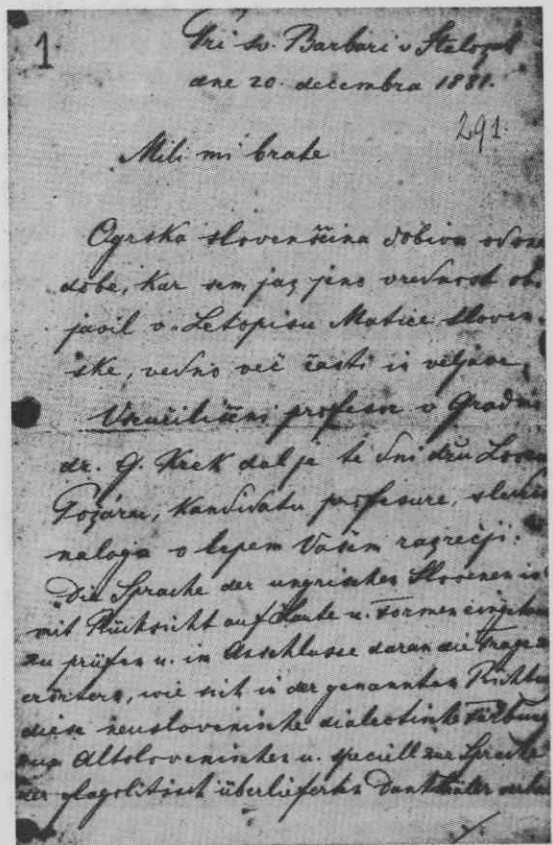 1
Pri sv. Barbari v
dne 20. decembra 1881.
291.
Mili mi brate
Ogrska slovenščina dobiva
dobe, kar sem jaz jeno vrednost ob-
javil v Letopisu Matice sloven-
ske, vedno več časti in veljave.
Vseučiliščni profesor v Gradcu
dr. G. Krek dal je te dni
kandidatu profesure,
naloga o lepem Vašem razrečji:
„Die Sprache der ungrischen Slovenen
mit Rücksicht auf Laute u. Formen
zu prüfen u. im Anschlusse daran die Frage
erörtern, wie sich in der genannten
diese neuslovenische dialectische Färbung
zum Altslovenischen u. speciell zur Sprache
der glagolitisch überlieferten Denkmäler